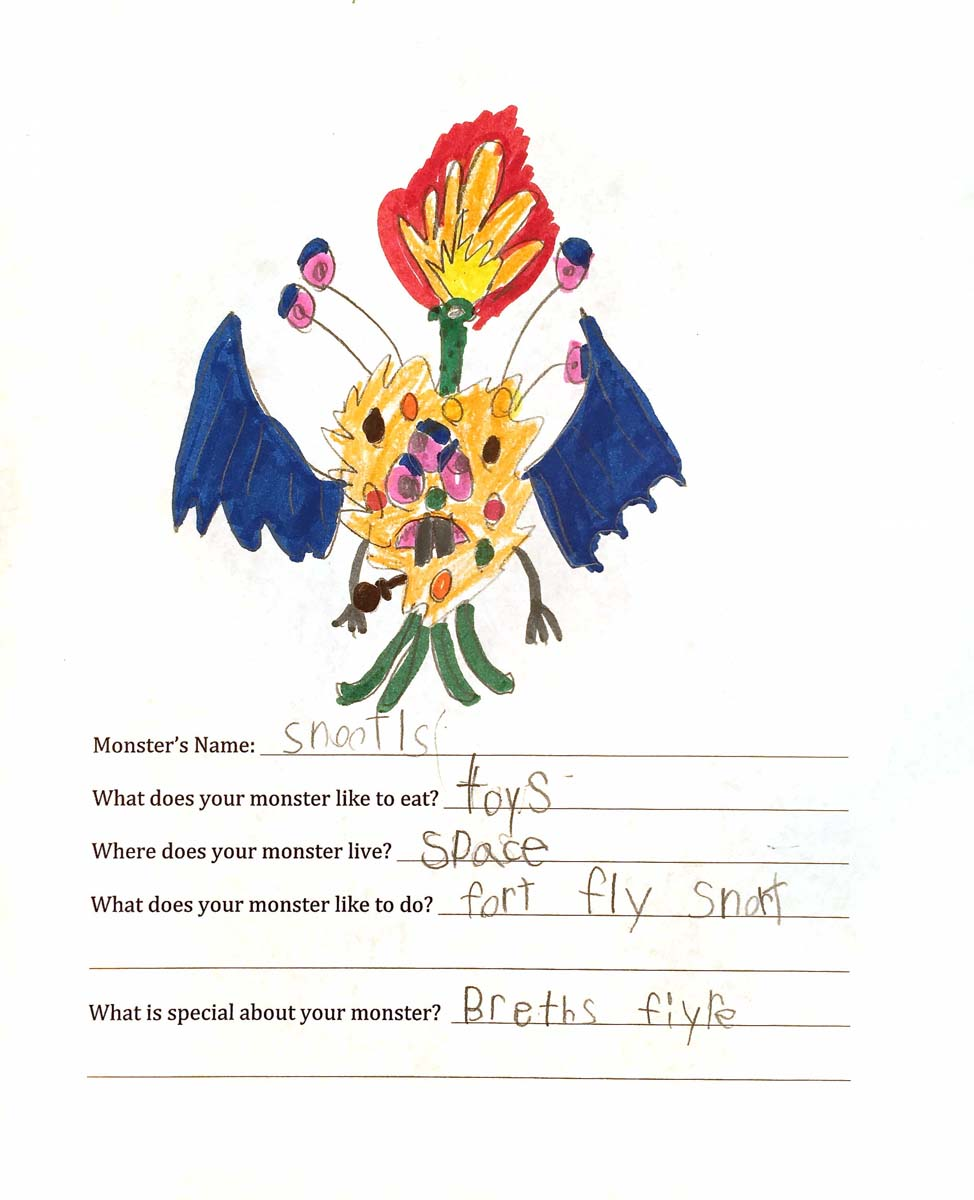 Monster's Name: snootls
What does your monster like to eat? toys
Where does your monster live? space
What does your monster like to do? fort fly snort
What is special about your monster? Breths fiyre